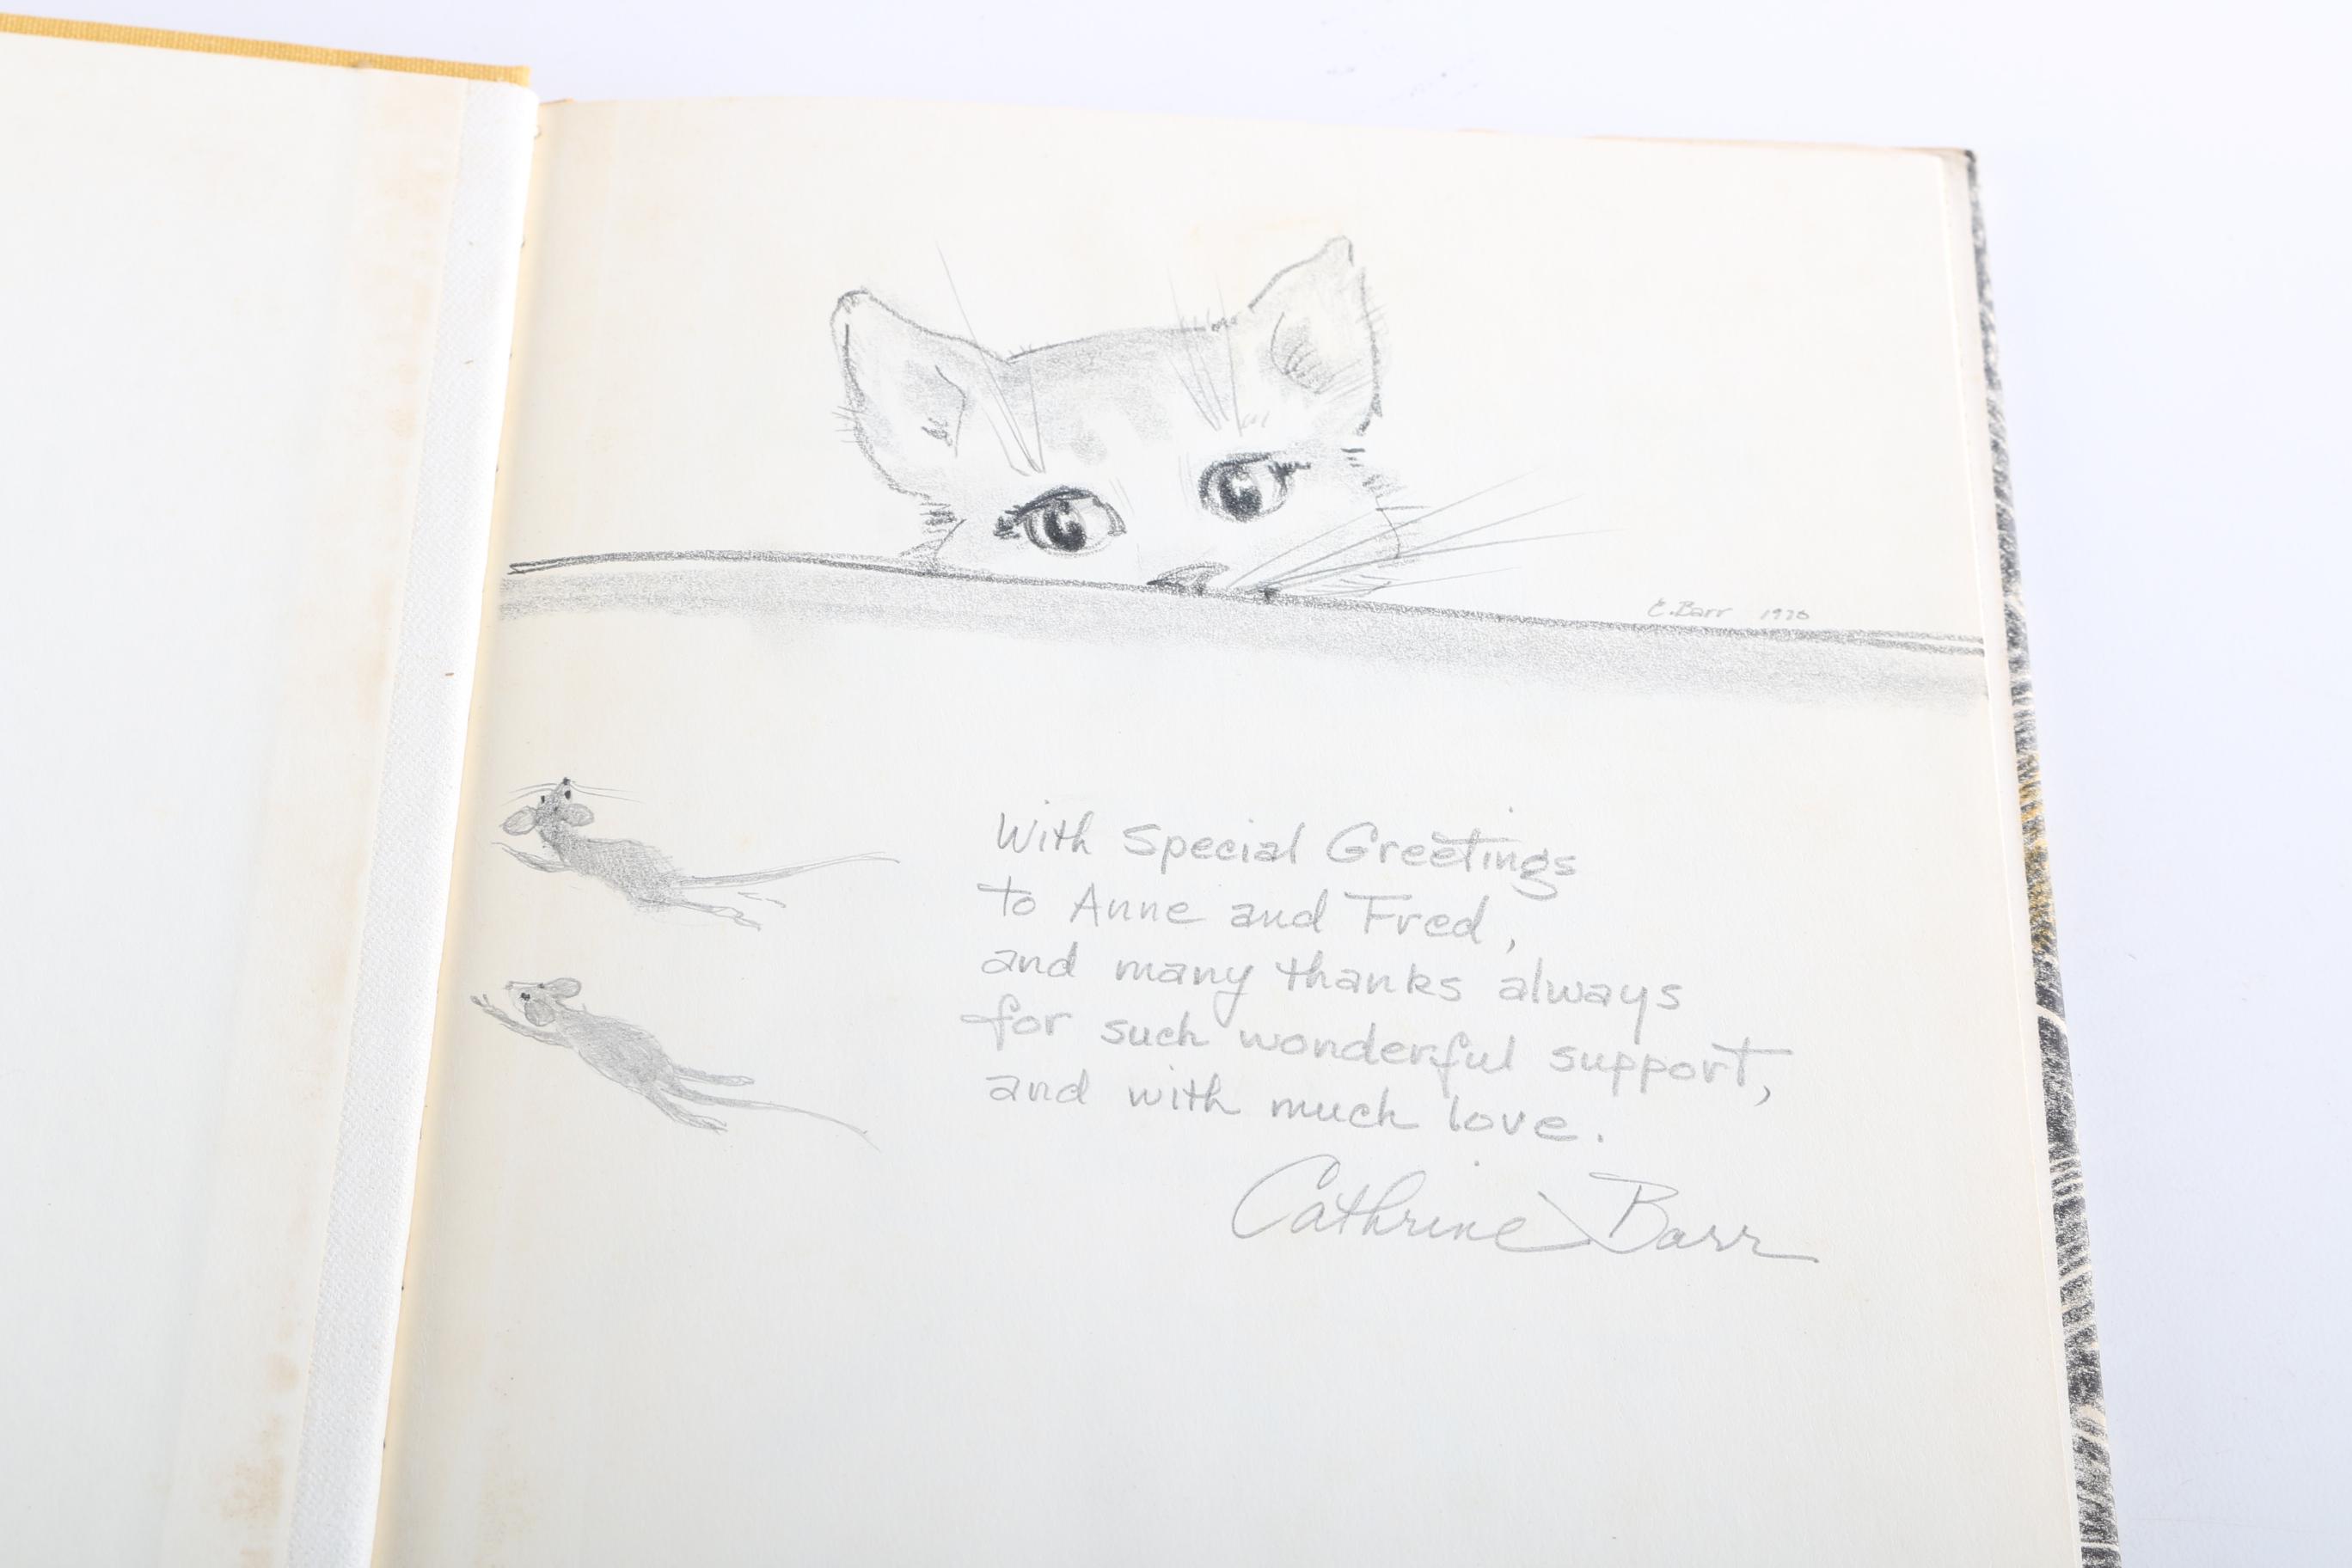 C. Barr 1970
With Special Greetings
to Anne and Fred,
and many thanks always
for such wonderful support,
and with much love.
Cathrine Barr